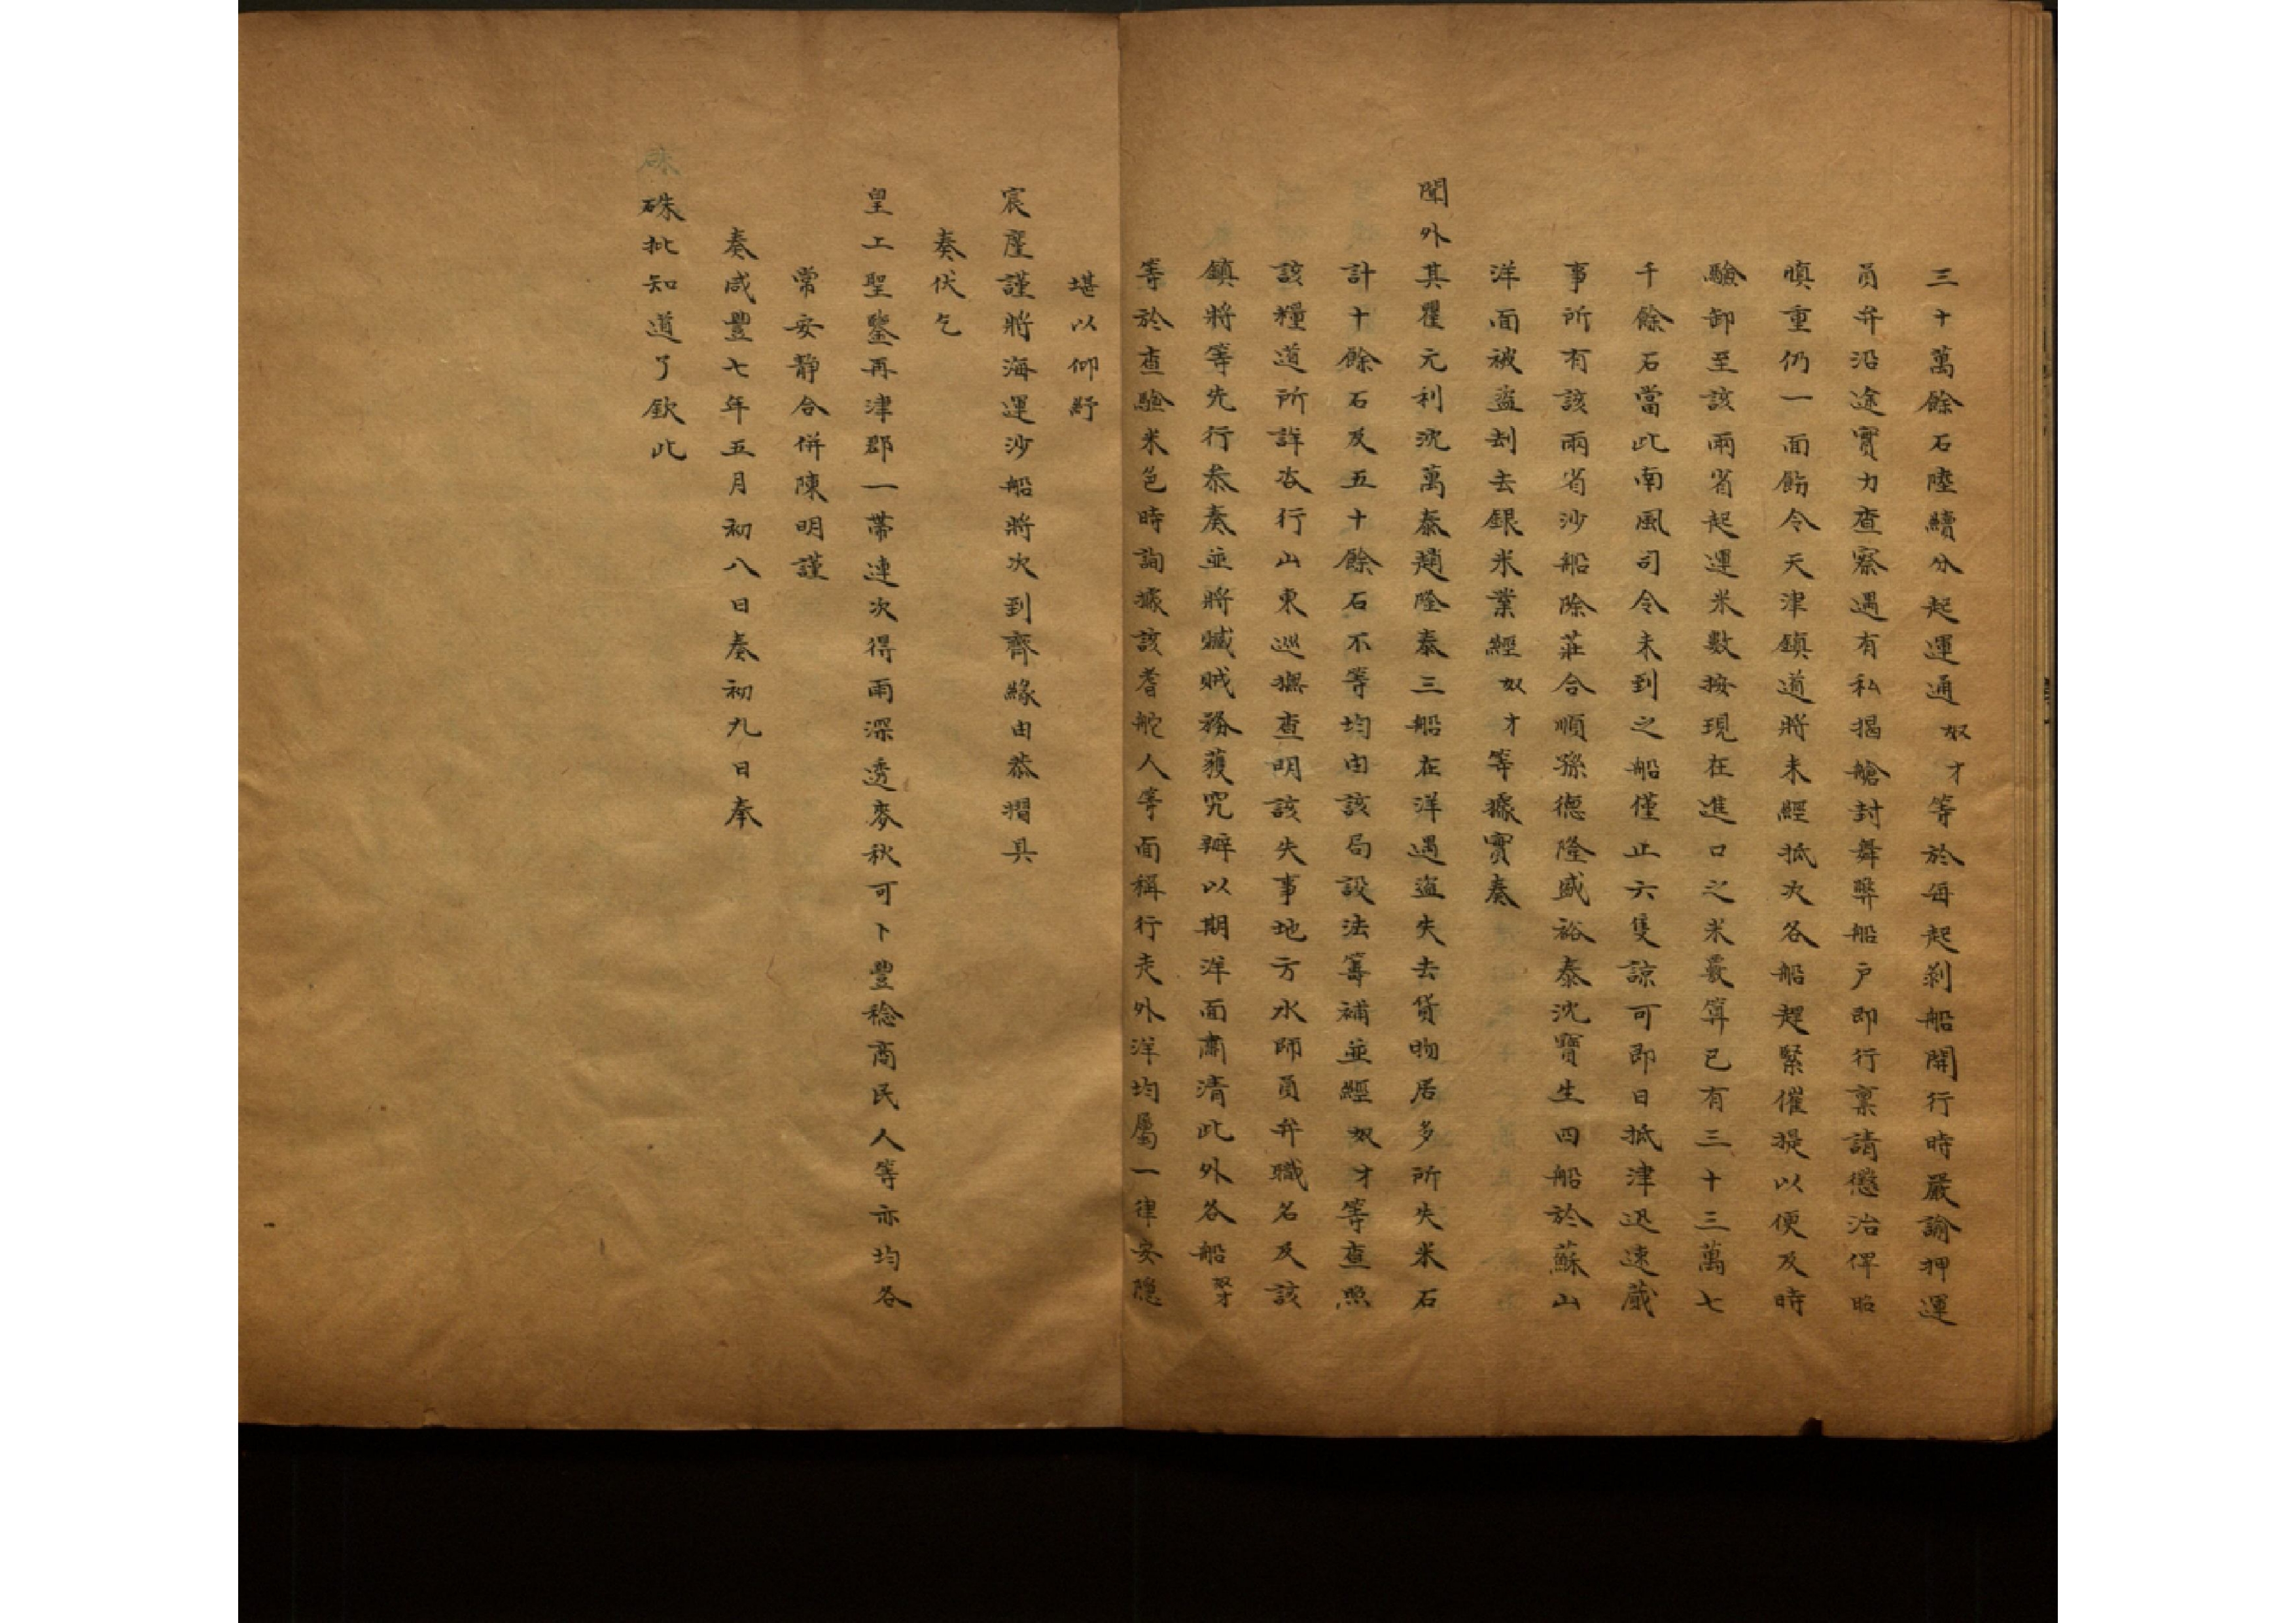 三十萬餘石陸續分起運通奴才等於每起剥船開行時嚴諭押運
員弁沿途實力查察遇有私揭艙封舞弊船戶即行禀請懲治俾昭
慎重仍一面飭令天津鎮道將未經抵次各船趕緊催提以便及時
驗卸至該兩省起運米數按現在進口之米覈算已有三十三萬七
千餘石當此南風司令未到之船僅止六隻諒可即日抵津迅速蕆
事所有該兩省沙船除莊合順孫德隆盛裕泰沈寶生四船於蘇山
洋面被盜刦去銀米業經奴才等據實奏
聞外其瞿元利沈萬泰趙隆泰三船在洋遇盜失去貨物居多所失米石
計十餘石及五十餘石不等均由該局設法籌補並經奴才等查照
該糧道所詳咨行山東巡撫查明該失事地方水師員弁職名及該
鎮將等先行叅奏並將贓賊務獲究辦以期洋面肅清此外各船奴才
等於查驗米色時詢據該耆舵人等面稱行走外洋均屬一律安隱
堪以仰紓
宸廑謹將海運沙船將次到齊緣由恭摺具
奏伏乞
皇上聖鑒再津郡一帶連次得雨深透麥秋可卜豐稔商民人等亦均各
常安靜合併陳明謹
奏咸豐七年五月初八日奏初九日奉
硃
硃批知道了欽此